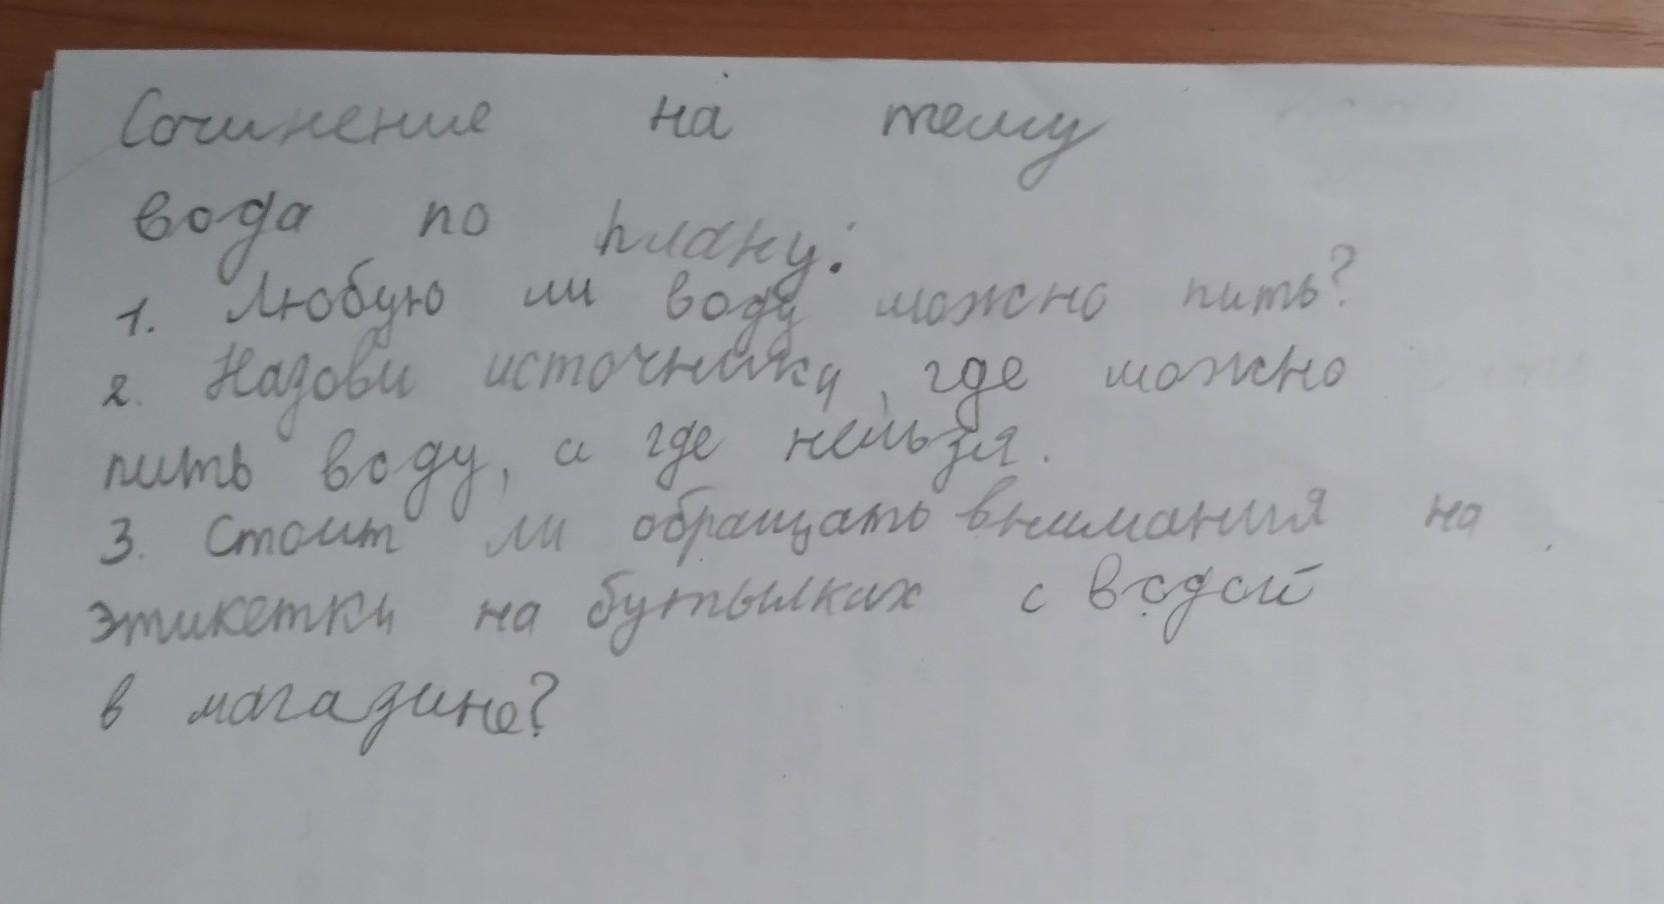 Сочинение на тему
вода по плану:
1. Любую ли воду можно пить?
2. Назови источники, где можно
пить воду, а где нельзя.
3. Стоит ли обращать внимания на
этикетки на бутылках с водой
в магазине?